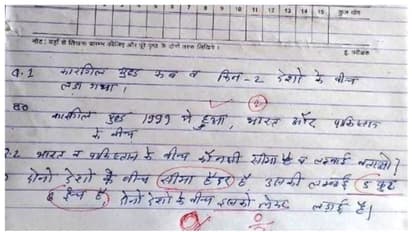 4 5 6 7 8 9 10 11 12 13 14 15 कुल योग
नोट: यहाँ से लिखना प्रारम्भ कीजिए और पूरे पृष्ठ के दोनों तरफ लिखिये ।
Q.1 कारगिल युद्ध कब व किन-2 देशो के बीच
लड़ा गया।
2
कारगिल युद्ध 1999 मे हुआ, भारत और पाकिस्तान
के बीच
2 भारत व पाकिस्तान के बीच कौनसी सीमा है व लम्बाई बताओ?
दोनो देशो के बीच सीमा हैडर है उसकी लम्बाई 5 फुट
6 इंच है, दोनो देशो के बीच इसको लेकर लड़ाई है।